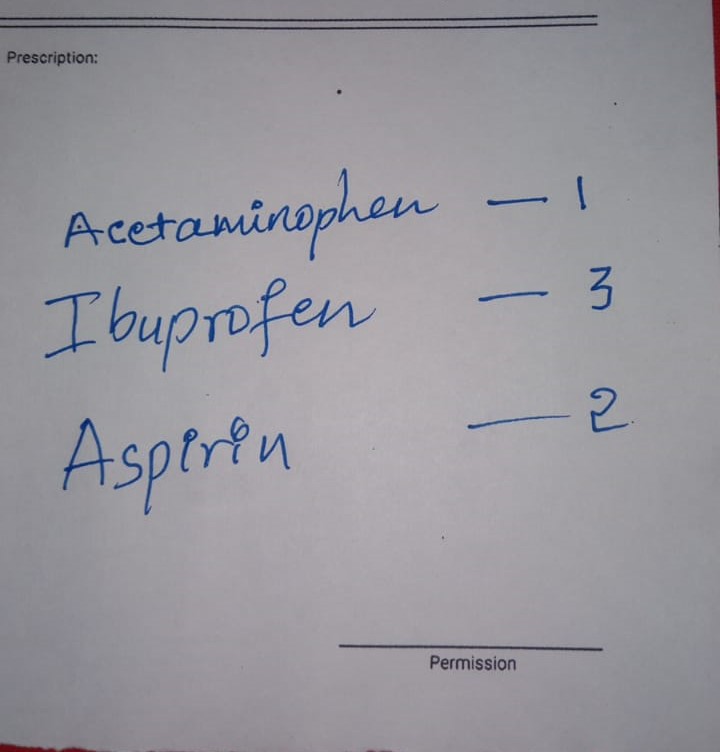 Prescription:
Acetaminophen — 1
Ibuprofen — 3
Aspirin — 2
Permission